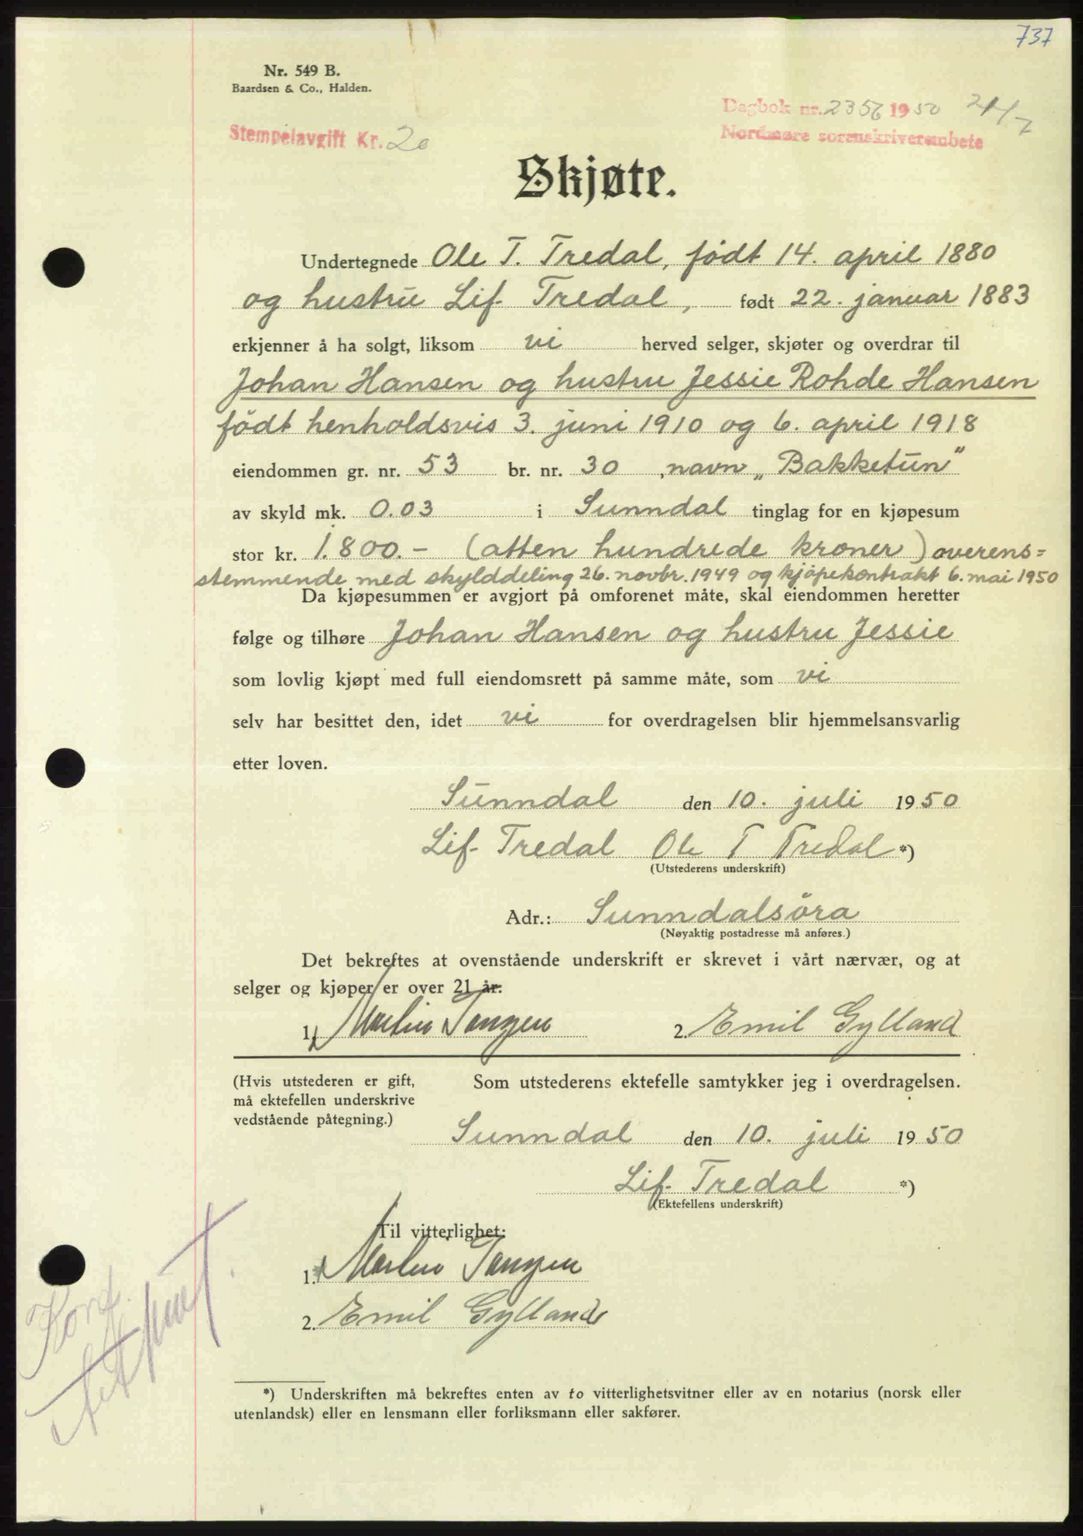 737
Nr. 549 B.
Baardsen & Co., Halden.
Dagbok nr. 2356 1950
Nordmøre sorenskriverembete
Stempelavgift Kr. 20
Skjøte.
Undertegnede Ole T. Tredal, født 14. april 1880
og hustru Lif Tredal, født 22. januar 1883
erkjenner å ha solgt, liksom vi herved selger, skjøter og overdrar til
Johan Hansen og hustru Jessie Rohde Hansen
født henholdsvis 3. juni 1910 og 6. april 1918
eiendommen gr. nr. 53 br. nr. 30 , navn „Bakketun"
av skyld mk. 0.03 i Sunndal tinglag for en kjøpesum
stor kr. 1.800.- (atten hundrede kroner) overens=
stemmende med skylddeling 26. novbr. 1949 og kjøpekontrakt 6. mai 1950
Da kjøpesummen er avgjort på omforenet måte, skal eiendommen heretter
følge og tilhøre Johan Hansen og hustru Jessie
som lovlig kjøpt med full eiendomsrett på samme måte, som vi
selv har besittet den, idet vi for overdragelsen blir hjemmelsansvarlig
etter loven.
Sunndal den 10. juli 1950
Lif Tredal Ole T Tredal *)
(Utstederens underskrift)
Adr.: Sunndalsöra
(Nøyaktig postadresse må anføres.)
Det bekreftes at ovenstående underskrift er skrevet i vårt nærvær, og at
selger og kjøper er over 21 år.
1. Martin Tangen 2. Emil Gylland
(Hvis utstederen er gift, Som utstederens ektefelle samtykker jeg i overdragelsen.
må ektefellen underskrive
vedstående påtegning.)
Sunndal den 10. juli 1950
Lif Tredal *)
(Ektefellens underskrift)
Til vitterlighet:
1. Martin Tangen
2. Emil Gylland
Konf.
*) Underskriften må bekreftes enten av to vitterlighetsvitner eller av en notarius (norsk eller
utenlandsk) eller en lensmann eller forliksmann eller sakfører.